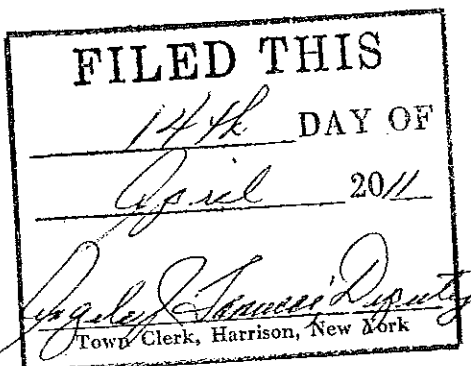 FILED THIS
14th DAY OF
April 2011
Deputy
Town Clerk, Harrison, New York